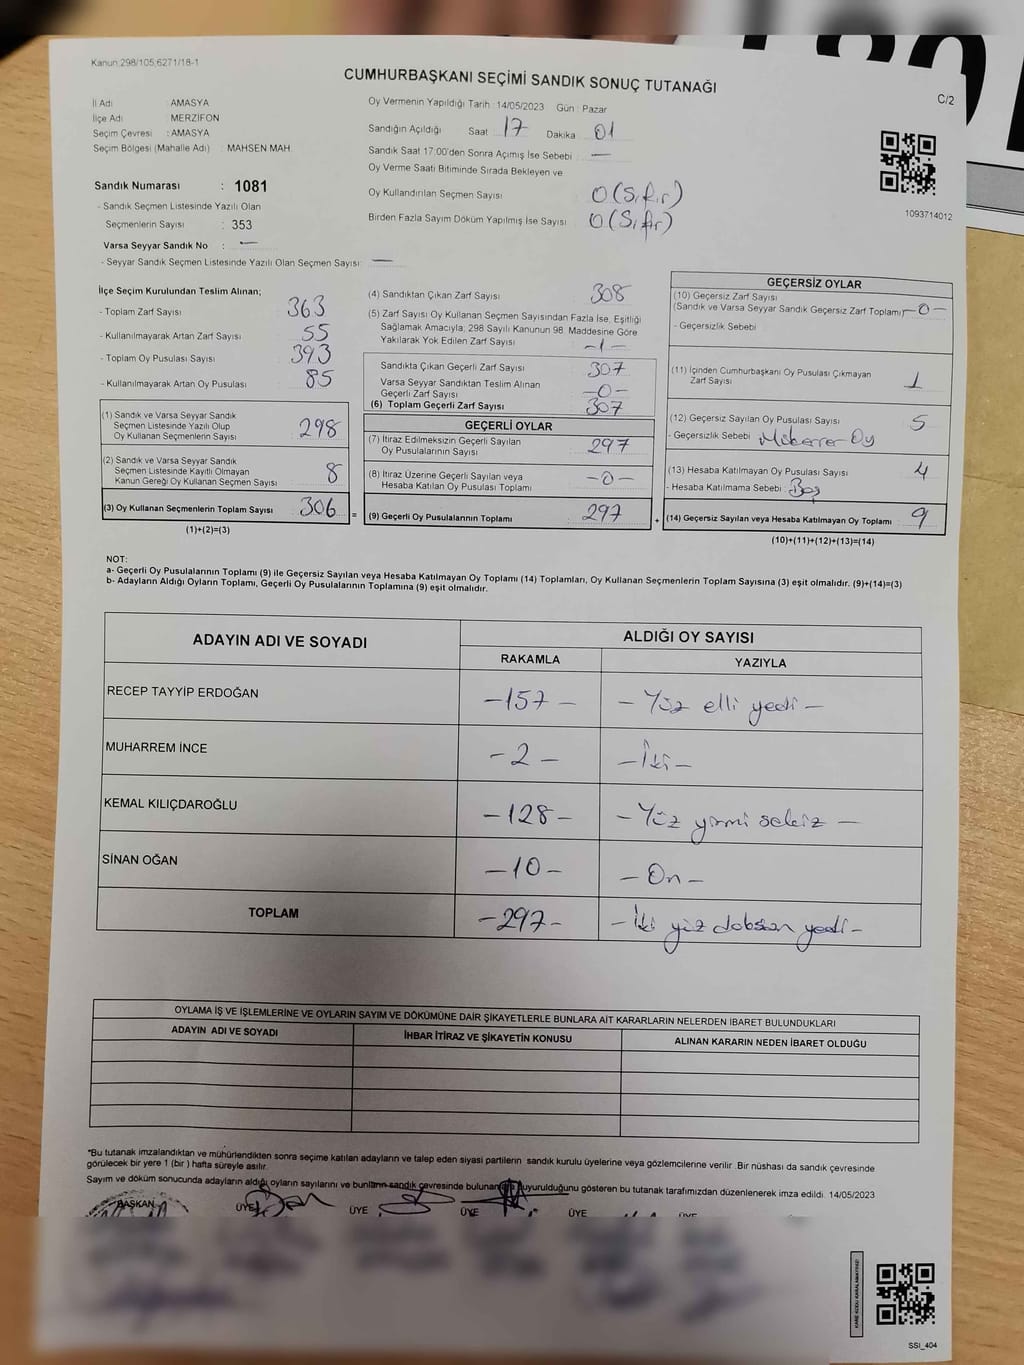 Kanun:298/105;6271/18-1
CUMHURBAŞKANI SEÇİMİ SANDIK SONUÇ TUTANAĞI
C/2
İl Adı : AMASYA
İlçe Adı : MERZİFON
Seçim Çevresi : AMASYA
Seçim Bölgesi (Mahalle Adı) : MAHSEN MAH.
Sandık Numarası : 1081
- Sandık Seçmen Listesinde Yazılı Olan
Seçmenlerin Sayısı : 353
Varsa Seyyar Sandık No : —
- Seyyar Sandık Seçmen Listesinde Yazılı Olan Seçmen Sayısı: —
Oy Vermenin Yapıldığı Tarih :14/05/2023 Gün : Pazar
Sandığın Açıldığı Saat : 17 Dakika : 01
Sandık Saat 17:00'den Sonra Açımış İse Sebebi : —
Oy Verme Saati Bitiminde Sırada Bekleyen ve
Oy Kullandırılan Seçmen Sayısı : 0 (Sıfır)
Birden Fazla Sayım Döküm Yapılmış İse Sayısı : 0 (Sıfır)
1093714012
İlçe Seçim Kurulundan Teslim Alınan;
- Toplam Zarf Sayısı : 363
- Kullanılmayarak Artan Zarf Sayısı : 55
- Toplam Oy Pusulası Sayısı : 393
- Kullanılmayarak Artan Oy Pusulası : 85
(1) Sandık ve Varsa Seyyar Sandık
Seçmen Listesinde Yazılı Olup
Oy Kullanan Seçmenlerin Sayısı : 298
(2) Sandık ve Varsa Seyyar Sandık
Seçmen Listesinde Kayıtlı Olmayan
Kanun Gereği Oy Kullanan Seçmen Sayısı : 8
(3) Oy Kullanan Seçmenlerin Toplam Sayısı : 306
(1)+(2)=(3)
(4) Sandıktan Çıkan Zarf Sayısı : 308
(5) Zarf Sayısı Oy Kullanan Seçmen Sayısından Fazla İse, Eşitliği
Sağlamak Amacıyla; 298 Sayılı Kanunun 98. Maddesine Göre
Yakılarak Yok Edilen Zarf Sayısı : -1-
Sandıkta Çıkan Geçerli Zarf Sayısı : 307
Varsa Seyyar Sandıktan Teslim Alınan
Geçerli Zarf Sayısı : -0-
(6) Toplam Geçerli Zarf Sayısı : 307
GEÇERLİ OYLAR
(7) İtiraz Edilmeksizin Geçerli Sayılan
Oy Pusulalarının Sayısı : 297
(8) İtiraz Üzerine Geçerli Sayılan veya
Hesaba Katılan Oy Pusulası Toplamı : -0-
= (9) Geçerli Oy Pusulalarının Toplamı : 297
GEÇERSİZ OYLAR
(10) Geçersiz Zarf Sayısı
(Sandık ve Varsa Seyyar Sandık Geçersiz Zarf Toplamı) -0-
- Geçersizlik Sebebi
(11) İçinden Cumhurbaşkanı Oy Pusulası Çıkmayan
Zarf Sayısı : 1
(12) Geçersiz Sayılan Oy Pusulası Sayısı : 5
- Geçersizlik Sebebi : Mükerrer Oy
(13) Hesaba Katılmayan Oy Pusulası Sayısı : 4
- Hesaba Katılmama Sebebi : Boş
+ (14) Geçersiz Sayılan veya Hesaba Katılmayan Oy Toplamı : 9
(10)+(11)+(12)+(13)=(14)
NOT:
a- Geçerli Oy Pusulalarının Toplamı (9) ile Geçersiz Sayılan veya Hesaba Katılmayan Oy Toplamı (14) Toplamları, Oy Kullanan Seçmenlerin Toplam Sayısına (3) eşit olmalıdır. (9)+(14)=(3)
b- Adayların Aldığı Oyların Toplamı, Geçerli Oy Pusulalarının Toplamına (9) eşit olmalıdır.
ADAYIN ADI VE SOYADI
ALDIĞI OY SAYISI
RAKAMLA YAZIYLA
RECEP TAYYİP ERDOĞAN -157- -Yüz elli yedi-
MUHARREM İNCE -2- -İki-
KEMAL KILIÇDAROĞLU -128- -Yüz yirmi sekiz-
SİNAN OĞAN -10- -On-
TOPLAM -297- -İki yüz doksan yedi-
OYLAMA İŞ VE İŞLEMLERİNE VE OYLARIN SAYIM VE DÖKÜMÜNE DAİR ŞİKAYETLERLE BUNLARA AİT KARARLARIN NELERDEN İBARET BULUNDUKLARI
ADAYIN ADI VE SOYADI İHBAR İTİRAZ VE ŞİKAYETİN KONUSU ALINAN KARARIN NEDEN İBARET OLDUĞU
*Bu tutanak imzalandıktan ve mühürlendikten sonra seçime katılan adayların ve talep eden siyasi partilerin sandık kurulu üyelerine veya gözlemcilerine verilir. Bir nüshası da sandık çevresinde
görülecek bir yere 1 (bir) hafta süreyle asılır.
Sayım ve döküm sonucunda adayların aldığı oyların sayılarını ve bunların sandık çevresinde bulunan duyurulduğunu gösteren bu tutanak tarafımızdan düzenlenerek imza edildi. 14/05/2023
BAŞKAN ÜYE ÜYE ÜYE ÜYE ÜYE
SSI_404